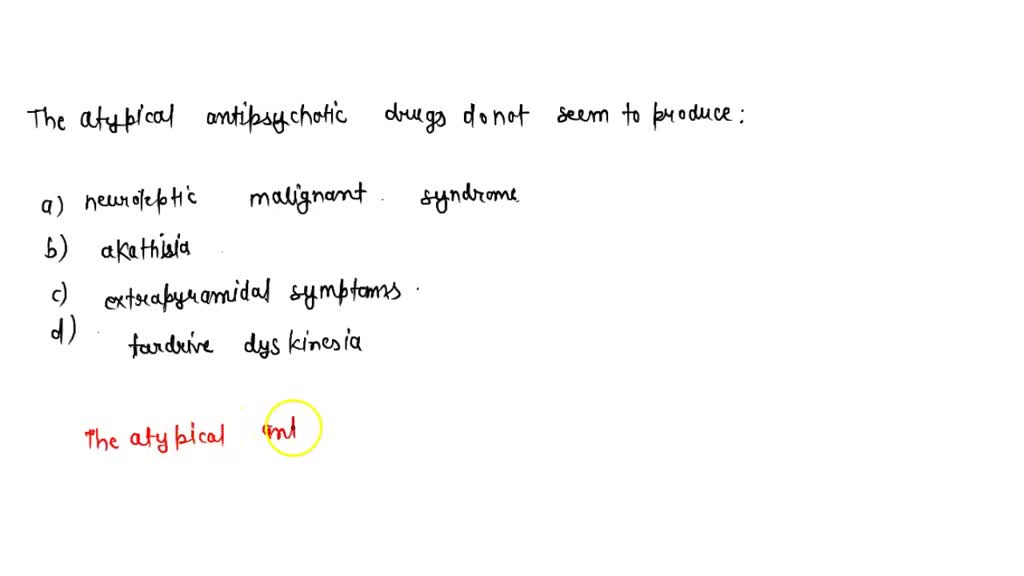 The atypical antipsychotic drugs do not seem to produce:
a) neuroleptic malignant syndrome
b) akathisia
c) extrapyramidal symptoms.
d) tardrive dyskinesia
The atypical ant